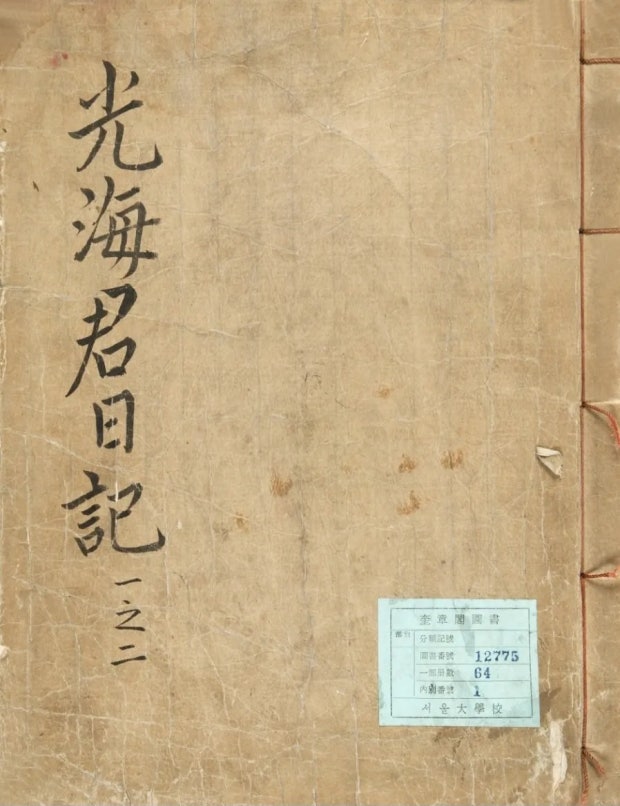 光海君日記 一之二
奎章閣圖書
部台
分類記號
圖書番號 12775
一部冊數 64
內冊番號 1
서울大學校